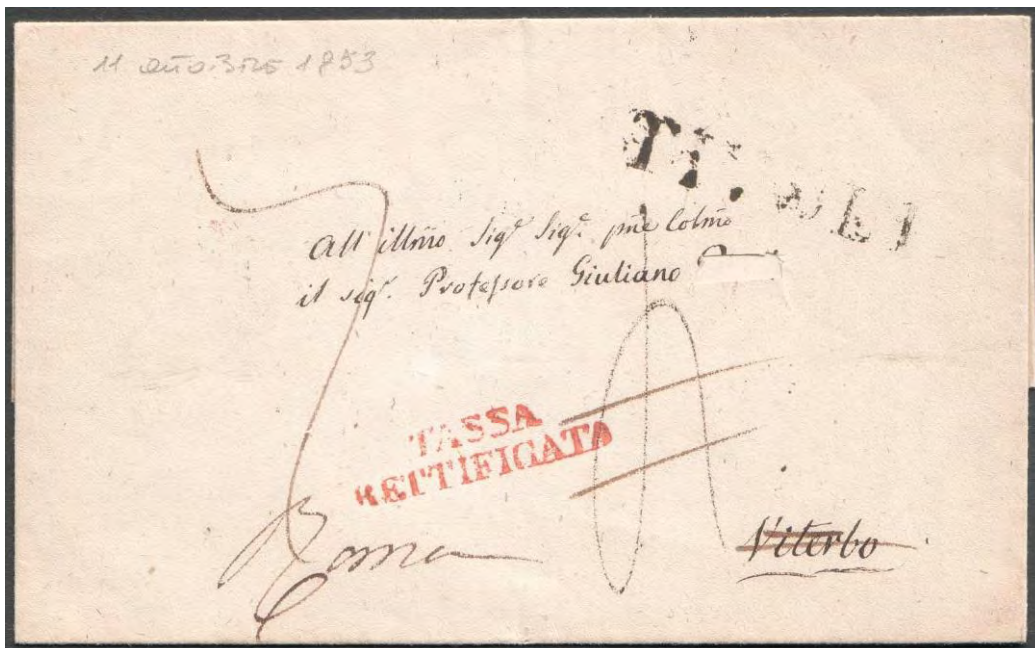 11 ottobre 1853
TIVOLI
All' Illmo Sigr Sigr. pñe Colmo
il sigr. Professore Giuliano
TASSA
RETTIFICATA
Roma
Viterbo